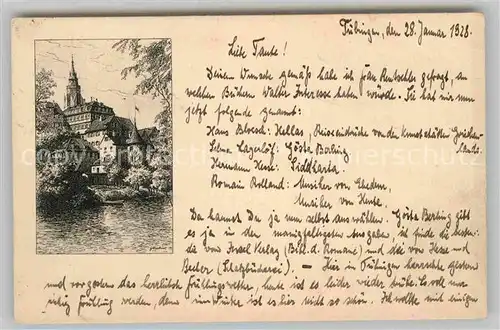 Tübingen, den 28. Januar 1928.
Liebe Tante!
Deinem Wunsche gemäß habe ich Frau Rentschler gefragt, an
welchen Büchern Walter Interesse haben würde. Sie hat mir nun
jetzt folgende genannt:
Hans : Hellas, Reiseeindrücke von den Kunststätten Griechen-
lands.
Selma Lagerlöf: Gösta Berling
Hermann Hesse: Siddharta.
Romain Rolland: Musiker von Ehedem,
Musiker von Heute.
Da kannst Du ja nun selbst auswählen. Gösta Berling gibt
es ja in den mannigfaltigsten Ausgaben ich finde die besten:
die von Insel Verlag (Bibl. d. Romane) und die von Hesse und
Becker (). – Hier in Tübingen herrschte gestern
und vorgestern das herrlichste Frühlingswetter, heute ist es leider wieder trübe. Es soll nur
ruhig Frühling werden, denn im Winter ist es hier nicht so schön. Ich wollte mit einigen